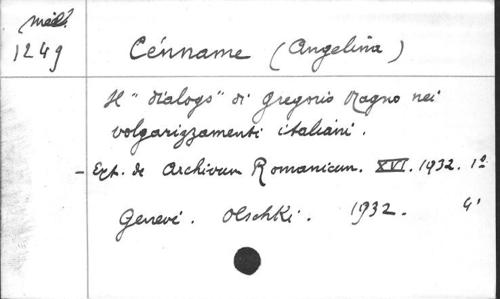 Méd.
1249
Cénname (Angelina)
Il "dialogo" di Gregorio Magno nei
volgarizzamenti italiani.
- Ext. de Archivum Romanicum. XVI. 1932. 1º
Genevè. Olschki. 1932. 4º